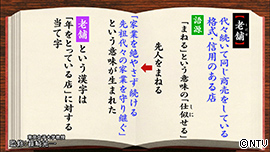 老舗
代々続いて同じ商売をしている
格式・信用のある店
語源
「まねる」という意味の「仕似せる」
先人をまねる
「家業を絶やさず続ける
先祖代々の家業を守り継ぐ」
という意味が生まれた
老舗 という漢字は
「年をとっている店」に対する
当て字
©NTV